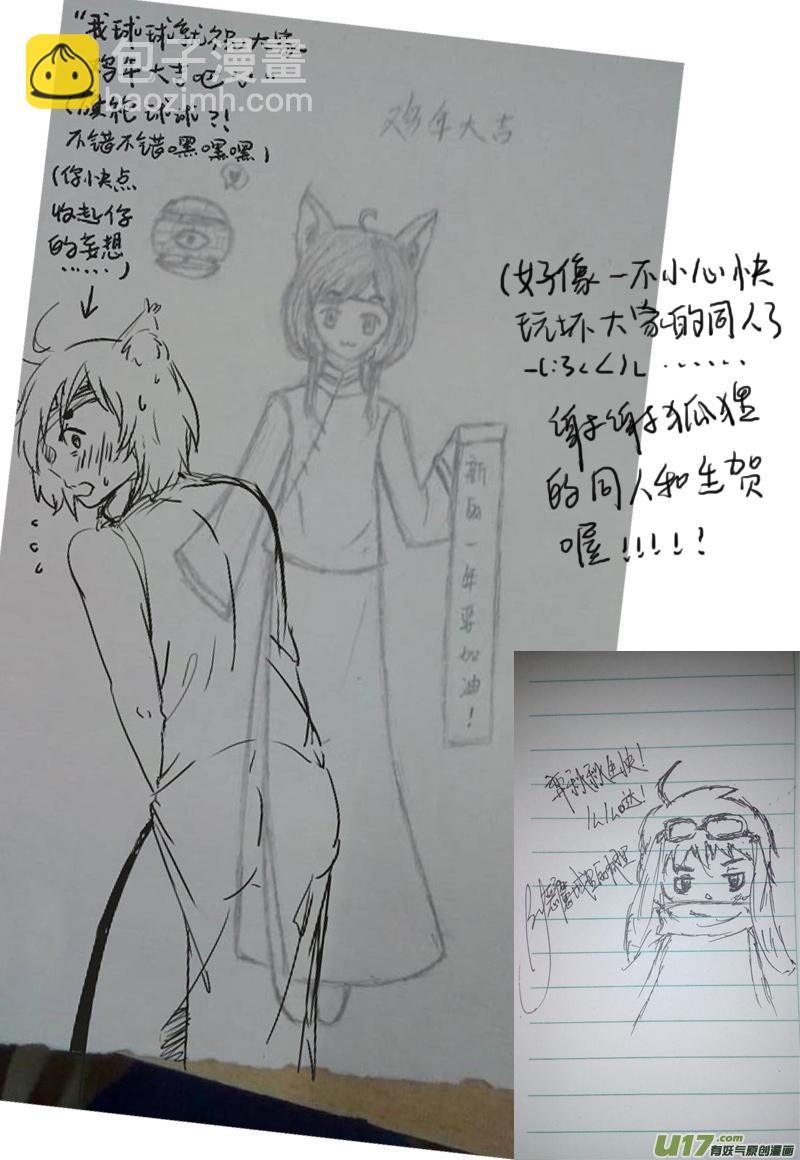 "我球球就祝大家
鸡年大吉吧
包子漫畫
baozimh.com
旗袍球球?!
不错不错嘿嘿嘿)
(你快点
收起你
的妄想
……)
鸡年大吉
新的一年要加油!
(好像一不小心快
玩坏大家的同人了
_(:3<∠)_ ……
谢谢狐狸
的同人和生贺
喔!!!!!
秋秋生快!
么么哒!
By
U17.com
有妖气原创漫画